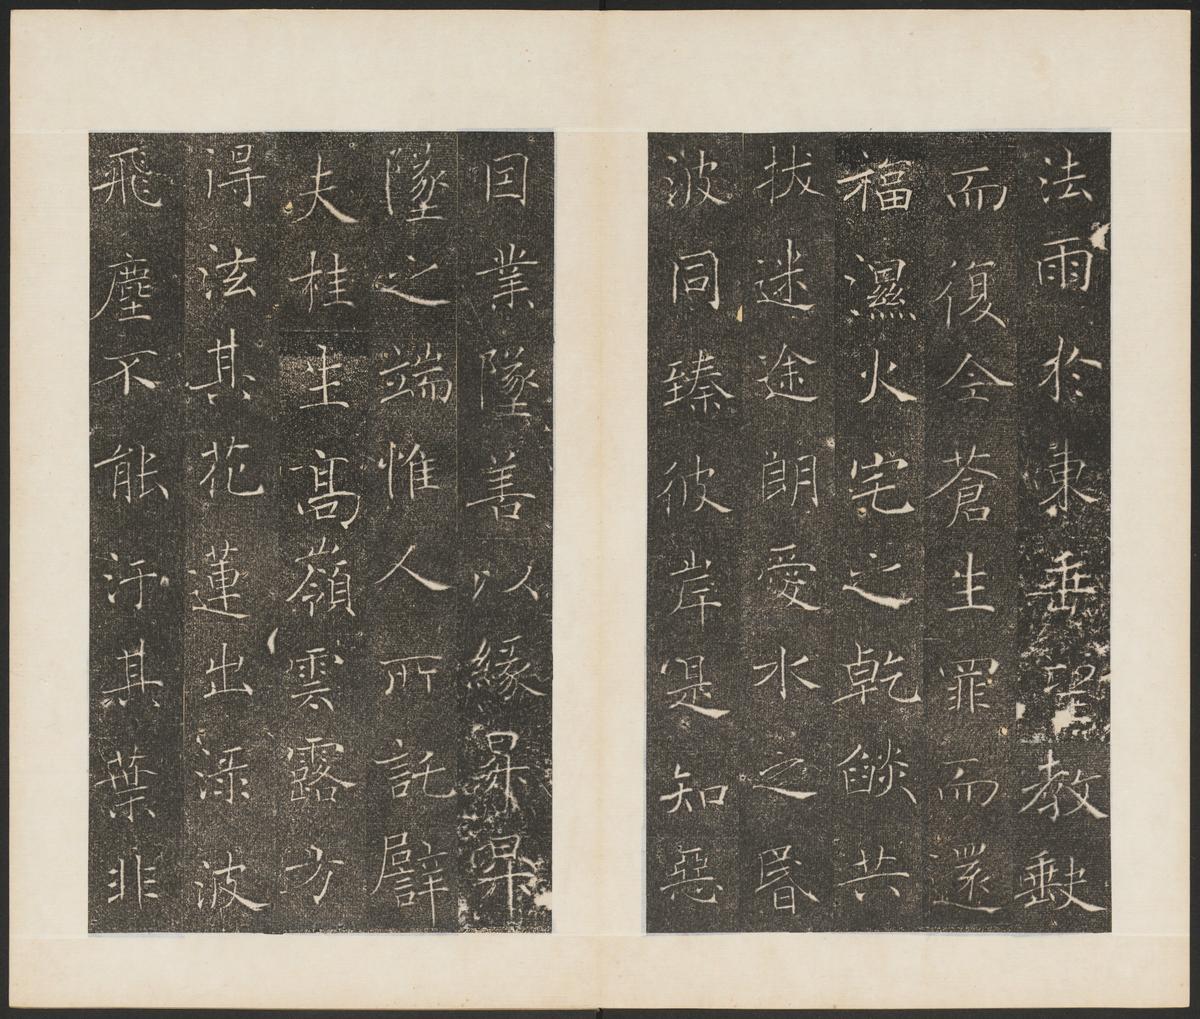 法雨於東垂聖教缺
而復全蒼生罪而還
福濕火宅之乾燄共
拔迷途朗愛水之昬
波同臻彼岸是知惡
囙業墜善以緣昇昇
墜之端惟人所託譬
夫桂生高嶺雲露方
得泫其花蓮出淥波
飛塵不能汙其葉非